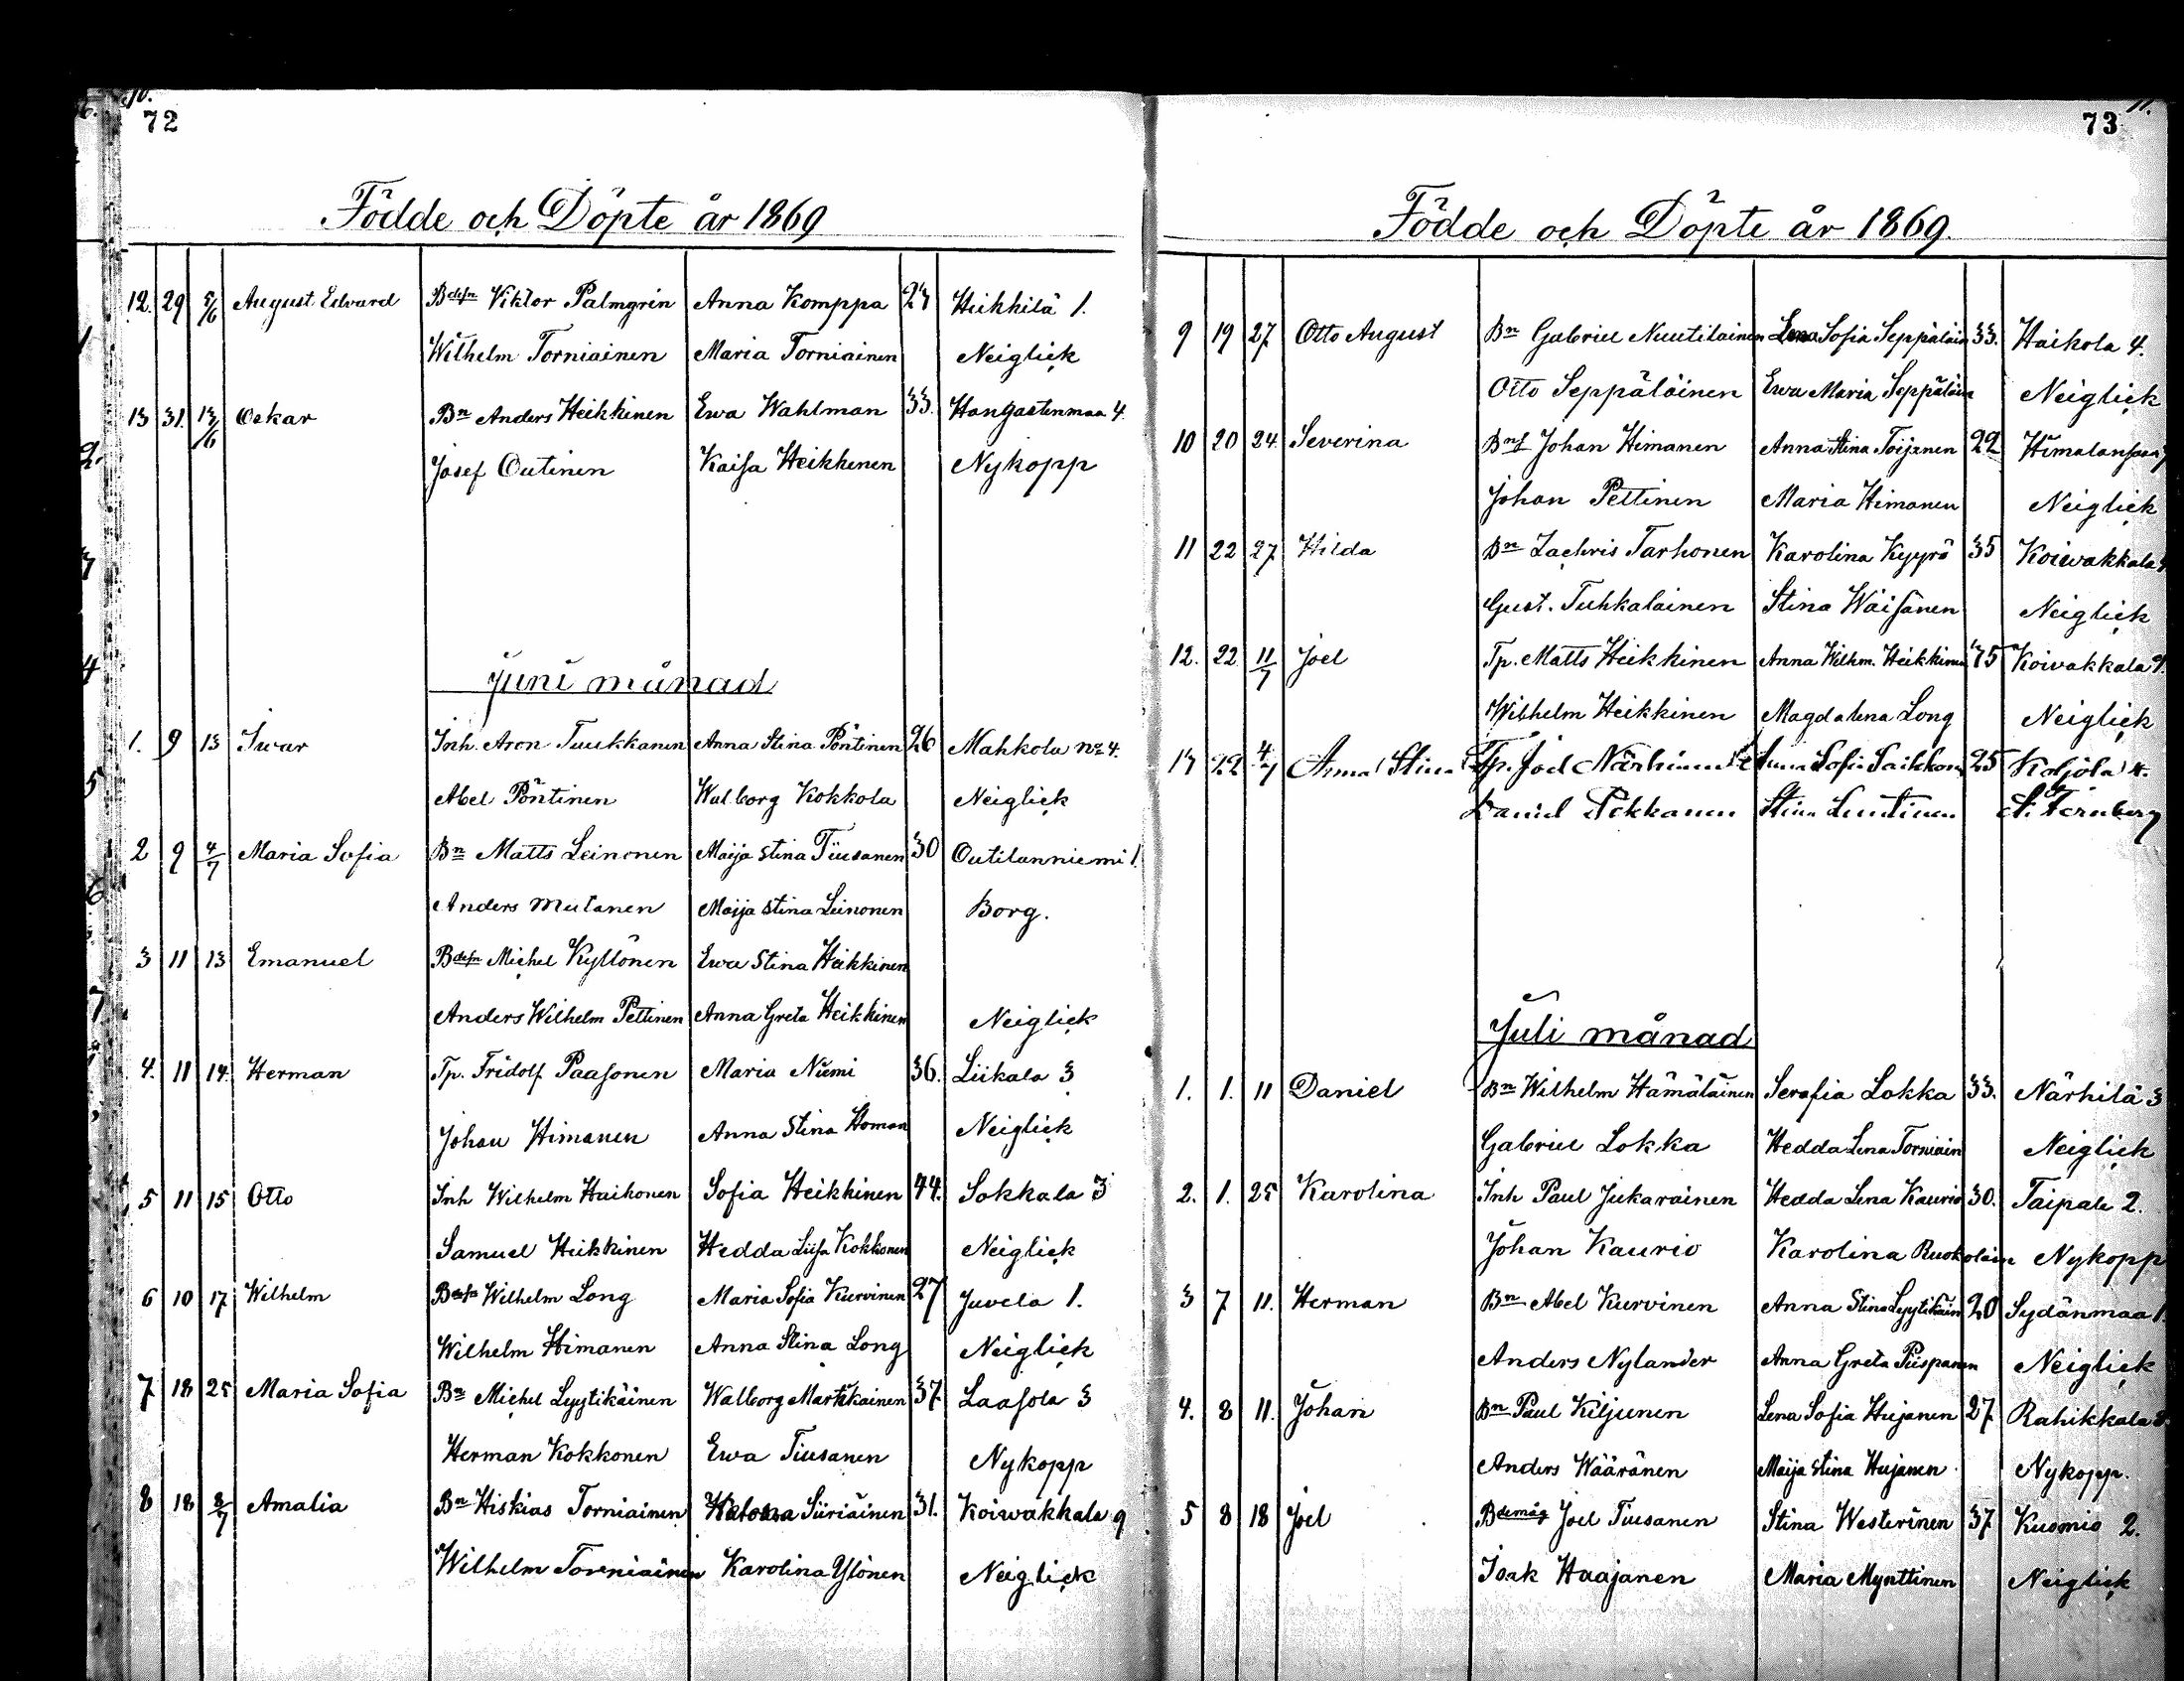 72
Födde och Döpte år 1869
12. 29 5/6 August Edvard Bdesn Viktor Palmgrin Anna Komppa 27 Hiekkilä 1.
Wilhelm Torniainen Maria Torniainen Neiglick
13 31. 13/6 Oskar Bn Anders Heikkinen Ewa Wahlman 33. Hangastenmaa 4.
Josef Outinen Kaisa Heikkenen Nykopp
Juni månad
1. 9 13 Iwar Inh. Aron Tuukkanen Anna Stina Pöntinen 26 Mahkola No 4.
Abel Pöntinen Walborg Kokkola Neiglick
2 9 4/7 Maria Sofia Bn Matts Leinonen Maija Stina Tiusanen 30 Outilanniemi 1.
Anders Mutanen Maija Stina Leinonen Borg.
3 11 13 Emanuel Bdesn Michel Kyllönen Ewa Stina Heikkinen
Anders Wilhelm Pettinen Anna Greta Heikkinen Neiglick
4. 11 14. Herman Tp. Fridolf Paasonen Maria Niemi 36. Liikala 3
Johan Himanen Anna Stina Homan Neiglick
5 11 15 Otto Inh Wilhelm Haikonen Sofia Heikkinen 44. Sokkala 3
Samuel Heikkinen Hedda Liisa Kokkonen Neiglick
6 10 17 Wilhelm Wilhelm Long Maria Sofia Kurvinen 27 Juvela 1.
Wilhelm Himanen Anna Stina Long Neiglick
7 18 25 Maria Sofia Bn Michel Lyytikäinen Walborg Martikainen 37. Laasola 3
Herman Kokkonen Ewa Tiusanen Nykopp
8 18 8/7 Amalia Bn Hiskias Torniainen Siiriäinen 31. Koiwakkala 9
Wilhelm Torniainen Karolina Ylönen Neiglick
73
Födde och Döpte år 1869.
9 19 27 Otto August Bn Gabriel Nuutilainen Lena Sofia Seppäläin 33. Haikola 4.
Otto Seppäläinen Ewa Maria Seppäläin Neiglick
10 20 24. Severina Bns Johan Himanen Anna Stina Toijanen 22 Himalansaari
Johan Pettinen Maria Himanen Neiglick
11 22 27. Hilda Bn Zachris Tarhonen Karolina Kyyrö 35 Koiwakkala 9
Gust. Tuhkalainen Stina Wäisänen Neiglick
12. 22 11/7 Joel Tp. Matts Heikkinen Anna Wilhm. Heikkinen Koivakkala 9.
Wilhelm Heikkinen Magdalena Long Neiglick
13 22 4/7 Anna Stina Tp. Joel Närhinen Anna Sofia Saikkon 25 Koljola 4.
Daniel Pekkanen Stina Lentinen Fernberg
Juli månad
1. 1. 11 Daniel Bn Wilhelm Hämäläinen Serafia Lokka 33. Närhilä 3
Gabriel Lokka Hedda Lena Torniain Neiglick
2. 1. 25 Karolina Inh Paul Jukarainen Hedda Lena Kaurio 30. Taipale 2.
Johan Kaurio Karolina Ruokolain Nykopp
3 7 11. Herman Bn Abel Kurvinen Anna Stina Lyytikäin 20 Sydänmaa 1.
Anders Nylander Anna Greta Piispanen Neiglick
4. 8 11. Johan Bn Paul Kiljunen Lena Sofia Hujanen 27. Rahikkala
Anders Wääränen Maija Stina Hujanen Nykopp.
5 8 18 Joel Bdemåg Joel Tiusanen Stina Westerinen 37 Kuomio 2.
Isak Haajanen Maria Mynttinen Neiglick